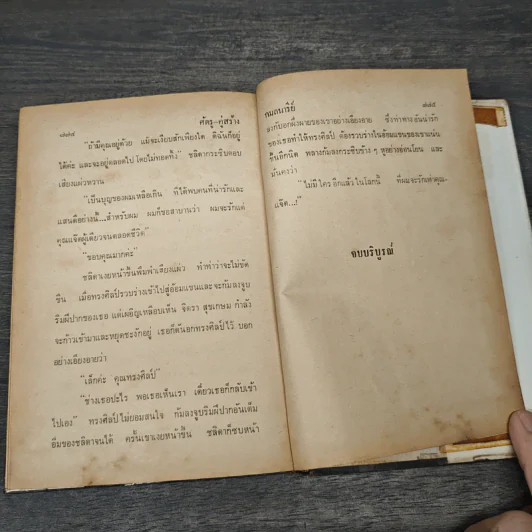 ๘๘๔ ศัตรู-คู่สร้าง
ถ้ามีคุณอยู่ด้วย แม้จะเงียบสักเพียงใด ดิฉันก็อยู่
ได้ค่ะ และจะอยู่ตลอดไป โดยไม่ทอดทิ้ง” ชลิดากระซิบตอบ
เสียงแผ่วหวาน
“เป็นบุญของผมเหลือเกิน ที่ได้พบคนที่น่ารักและ
แสนดีอย่างนี้...สำหรับผม ผมก็ขอสาบานว่า ผมจะรักแต่
คุณแจ๊ดผู้เดียวจนตลอดชีวิต”
“ขอบคุณมากค่ะ”
ชลิดาเงยหน้าขึ้นพึมพำเสียงแผ่ว ทำท่าว่าจะไม่ขัด
ขืน เมื่อทรงศิลป์รวบร่างเข้าไปสู่อ้อมแขนและจะก้มลงจูบ
ริมฝีปากของเธอ แต่เผอิญเหลือบเห็น จิตรา สุขเกษม กำลัง
จะก้าวเข้ามาและหยุดชะงักอยู่ เธอก็ดันอกทรงศิลป์ไว้ บอก
อย่างเอียงอายว่า
“เล็กค่ะ คุณทรงศิลป์”
“ช่างเธอปะไร พอเธอเห็นเรา เดี๋ยวเธอก็กลับเข้า
ไปเอง” ทรงศิลป์ไม่ยอมสนใจ ก้มลงจูบริมฝีปากอันเต็ม
อิ่มของชลิดาจนได้ ครั้นเขาเงยหน้าขึ้น ชลิดาก็ซบหน้า
กนกนารีย์ ๘๘๕
ลงกับอกผึ่งผายของเขาอย่างเอียงอาย ซึ่งท่าทางอันน่ารัก
ของเธอทำให้ทรงศิลป์ ต้องรวบร่างในอ้อมแขนของเขาแน่น
ขึ้นอีกนิด พลางก้มลงกระซิบข้าง ๆ หูอย่างอ่อนโยน และ
มั่นคงว่า
“ไม่มีใครอีกแล้วในโลกนี้ ที่ผมจะรักเท่าคุณ-
แจ๊ด...!”
จบบริบูรณ์